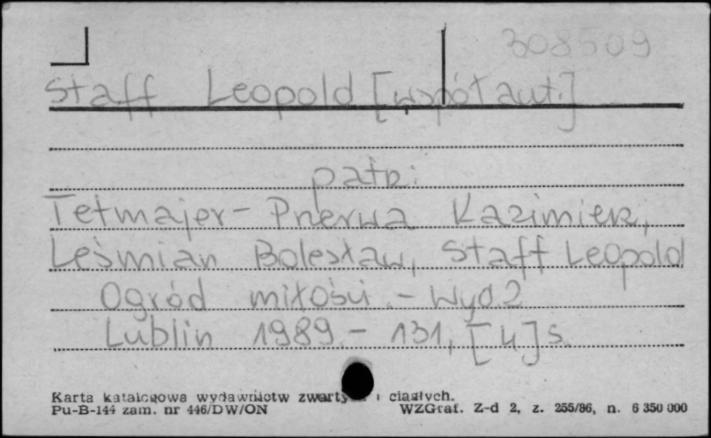 308509
Staff Leopold [współaut.]
patrz:
Tetmajer - Przerwa Kazimierz,
Leśmian Bolesław, Staff Leopold
Ogród miłości. - Wyd. 2
Lublin 1989. - 131, [4] s.
Karta katalogowa wydawnictw zwartych i ciągłych.
Pu-B-144 zam. nr 446/DW/ON WZGraf. Z-d 2, z. 255/86, n. 6 350 000